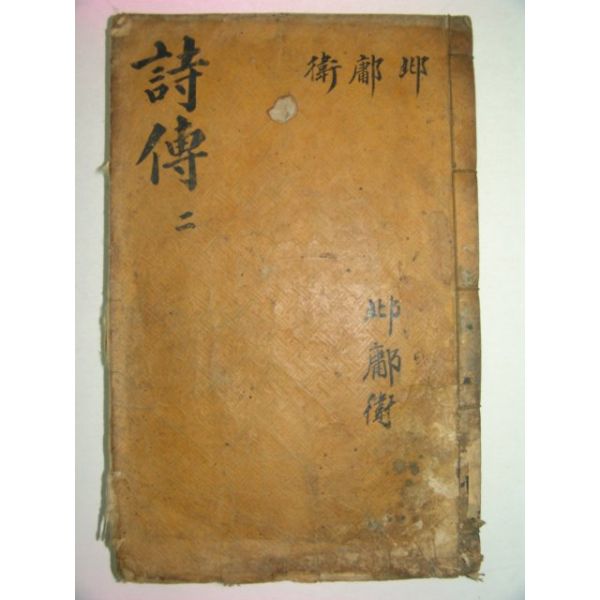 詩傳
二
邶鄘衛
邶鄘衛